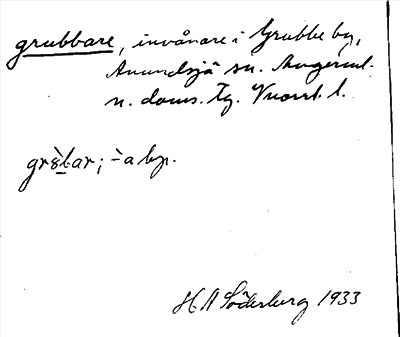 grubbare, invånare i Grubbe by,
Anundsjö sn. Ångerml.
n. doms. Tg. l.
grèbar; -̀a by.
H A Söderberg 1933